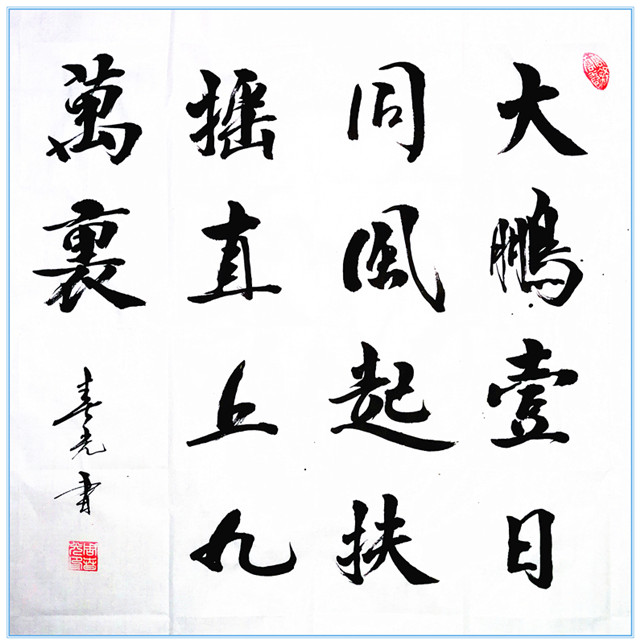 大鹏壹日
同風起扶
摇直上九
萬裏
春光书